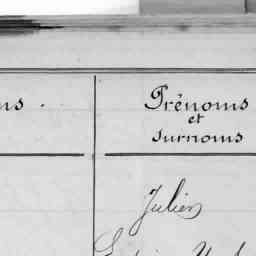 ns.
Prénoms
et
surnoms
Julien